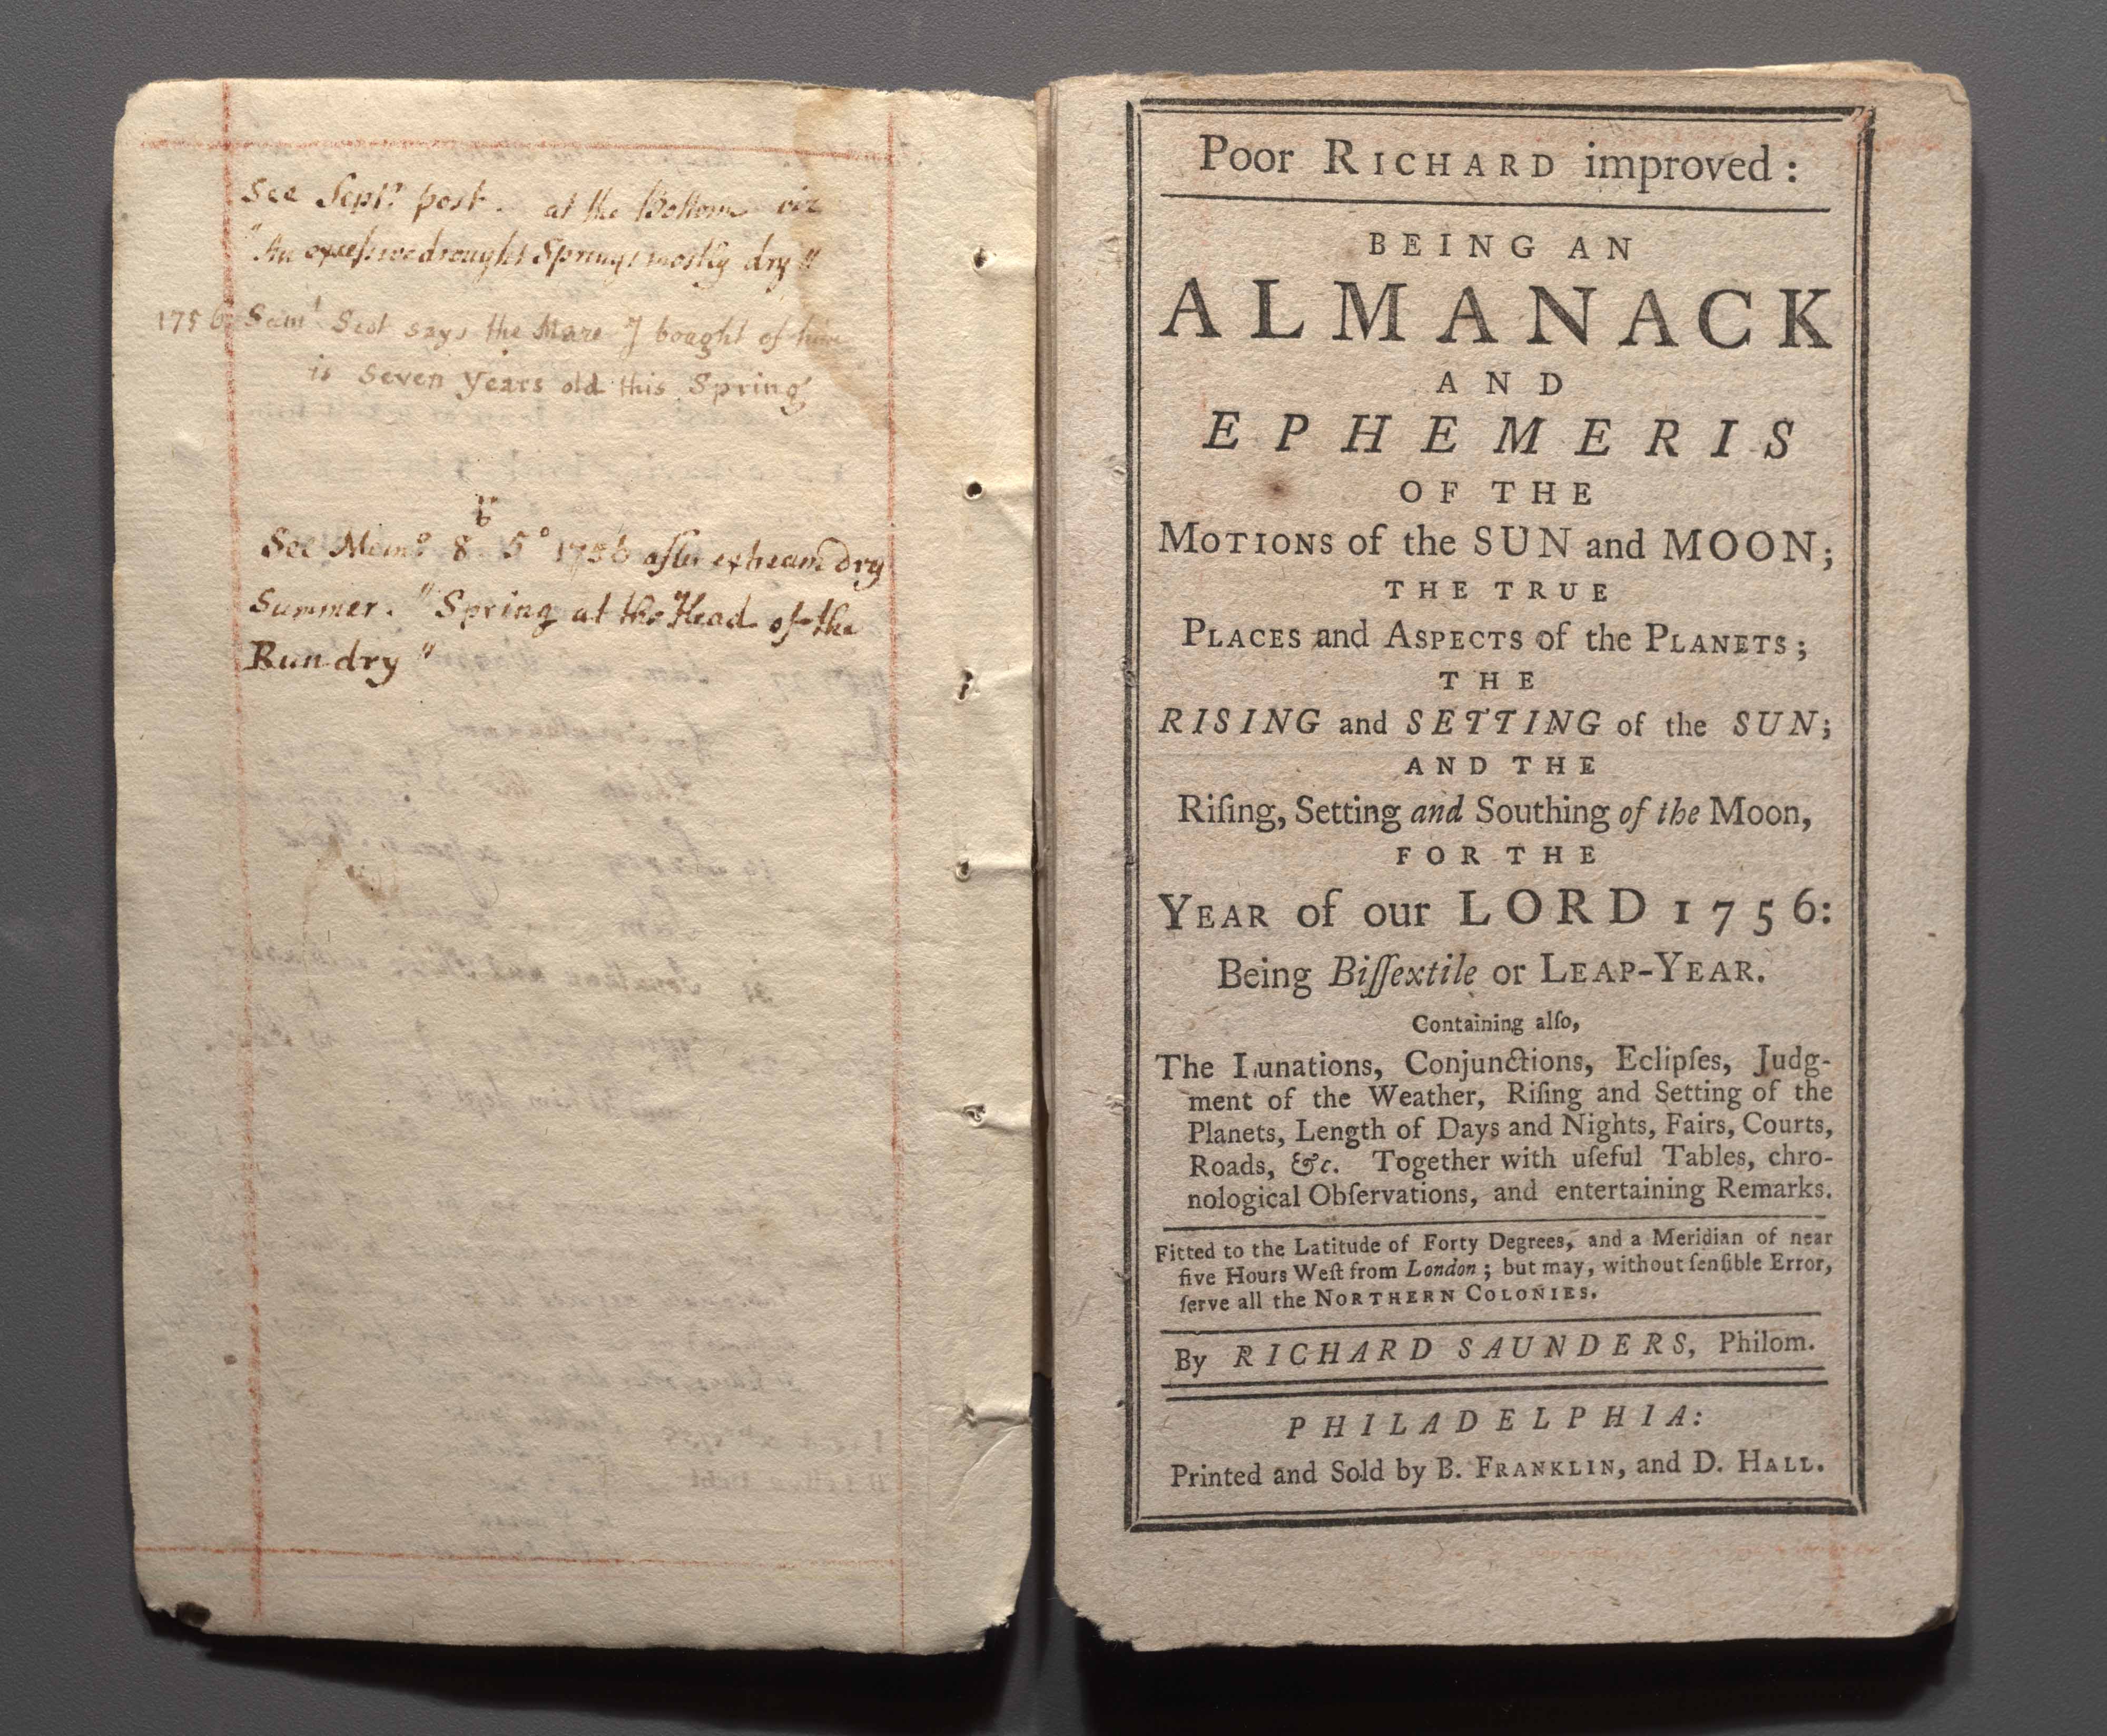 See Sept.r post. at the Bottom viz
"An excessive drought Springs mostly dry"
1756 Sam.l Scot says the Mare I bought of him
is seven Years old this Spring
See Mem.o 8 5° 1756 after extream dry
Summer. "Spring at the Head of the
Run dry"
Poor RICHARD improved:
BEING AN
ALMANACK
AND
EPHEMERIS
OF THE
MOTIONS of the SUN and MOON;
THE TRUE
PLACES and ASPECTS of the PLANETS;
THE
RISING and SETTING of the SUN;
AND THE
Riſing, Setting and Southing of the Moon,
FOR THE
YEAR of our LORD 1756:
Being Biſſextile or LEAP-YEAR.
Containing alſo,
The Lunations, Conjunctions, Eclipſes, Judg-
ment of the Weather, Riſing and Setting of the
Planets, Length of Days and Nights, Fairs, Courts,
Roads, &c. Together with uſeful Tables, chro-
nological Obſervations, and entertaining Remarks.
Fitted to the Latitude of Forty Degrees, and a Meridian of near
five Hours Weſt from London; but may, without ſenſible Error,
ſerve all the NORTHERN COLONIES.
By RICHARD SAUNDERS, Philom.
PHILADELPHIA:
Printed and Sold by B. FRANKLIN, and D. HALL.